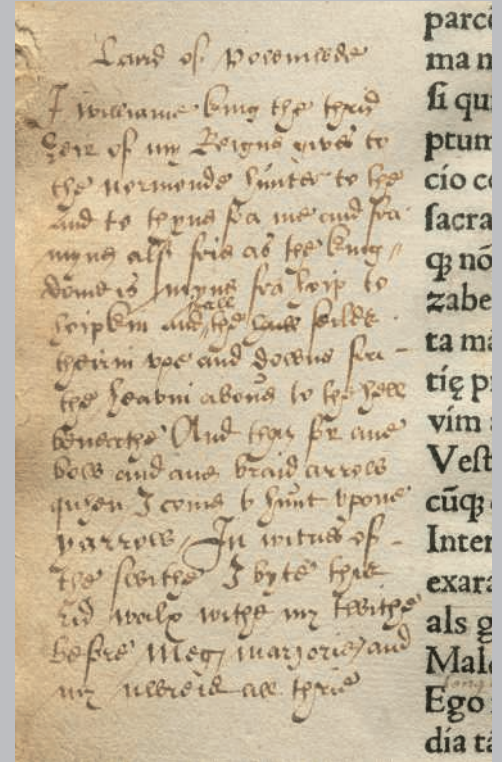 Laird of Powmwode
I williame king the thrid
Zeir of my Reigne gives to
the normonde hunter to the
and to thyne fra me and fra
myne als frie as the king
dome is myne fra hoip to
hoipkin and the hauf feilde
shall
theirin vpe and downe fra
the heavin abone to the hell
beneathe And thay for ane
bow and ane braid arrow
quhen I come to hunt vpone
yarrow, In witnes of
the swithe I byte this
wax withe my twithe
before Meg, marjorie, and
my nwreis all thrie
parce
ma n
si qui
ptum
cio ce
sacra
q; nō
zabe
ta ma
tię p
vim
Vest
cūq;
Inter
exara
als g
Male
Ego
dia ta